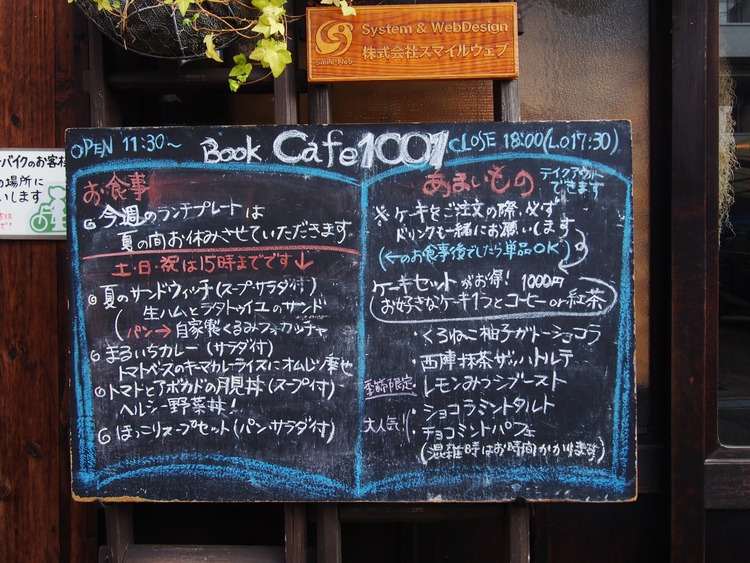 System & WebDesign
株式会社スマイルウェブ
Smile Web
バイクのお客様
の場所に
いします
OPEN 11:30〜
Book Cafe 1001
CLOSE 18:00(L.O17:30)
お食事
今週のランチプレートは
夏の間お休みさせていただきます
土・日・祝は15時までです↓
夏のサンドウィッチ(スープ・サラダ付)
生ハムとラタトゥイユのサンド
パン→自家製くるみフォカッチャ
まるいちカレー(サラダ付)
トマトベースのキーマカレーライスにオムレツ乗せ
トマトとアボカドの月見丼(スープ付)
ヘルシー野菜丼!
ほっこりスープセット(パン・サラダ付)
あまいもの
テイクアウトできます
※ケーキをご注文の際、必ず
ドリンクも一緒にお願いします
(←のお食事後でしたら単品OK)
ケーキセットがお得! 1000円
お好きなケーキ1つとコーヒーor紅茶
・くろねこ柚子ガトーショコラ
・西陣抹茶ザッハトルテ
季節限定 ・レモンみつシブースト
・ショコラミントタルト
大人気!! ・チョコミントパフェ
(混雑時はお時間かかります)